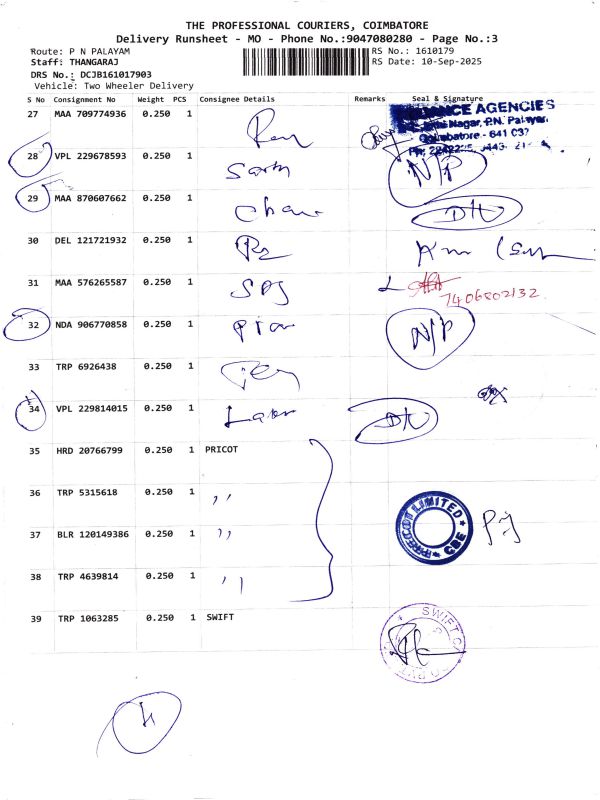 THE PROFESSIONAL COURIERS, COIMBATORE
Delivery Runsheet - MO - Phone No.:9047080280 - Page No.:3
Route: P N PALAYAM
RS No.: 1610179
Staff: THANGARAJ
RS Date: 10-Sep-2025
DRS No.: DCJB161017903
Vehicle: Two Wheeler Delivery
S No Consignment No Weight PCS Consignee Details Remarks Seal & Signature
27 MAA 709774936 0.250 1
AGENCIES
Nagar, P.N. Palayam
Coimbatore - 641 037
28 VPL 229678593 0.250 1 N/P
29 MAA 870607662 0.250 1 D/L
30 DEL 121721932 0.250 1
31 MAA 576265587 0.250 1
7406802132
32 NDA 906770858 0.250 1 N/P
33 TRP 6926438 0.250 1
34 VPL 229814015 0.250 1 D/L
35 HRD 20766799 0.250 1 PRICOT
36 TRP 5315618 0.250 1 ,,
PRECOT LIMITED
CBE
37 BLR 120149386 0.250 1 ,,
38 TRP 4639814 0.250 1 ,,
39 TRP 1063285 0.250 1 SWIFT
SWIFT